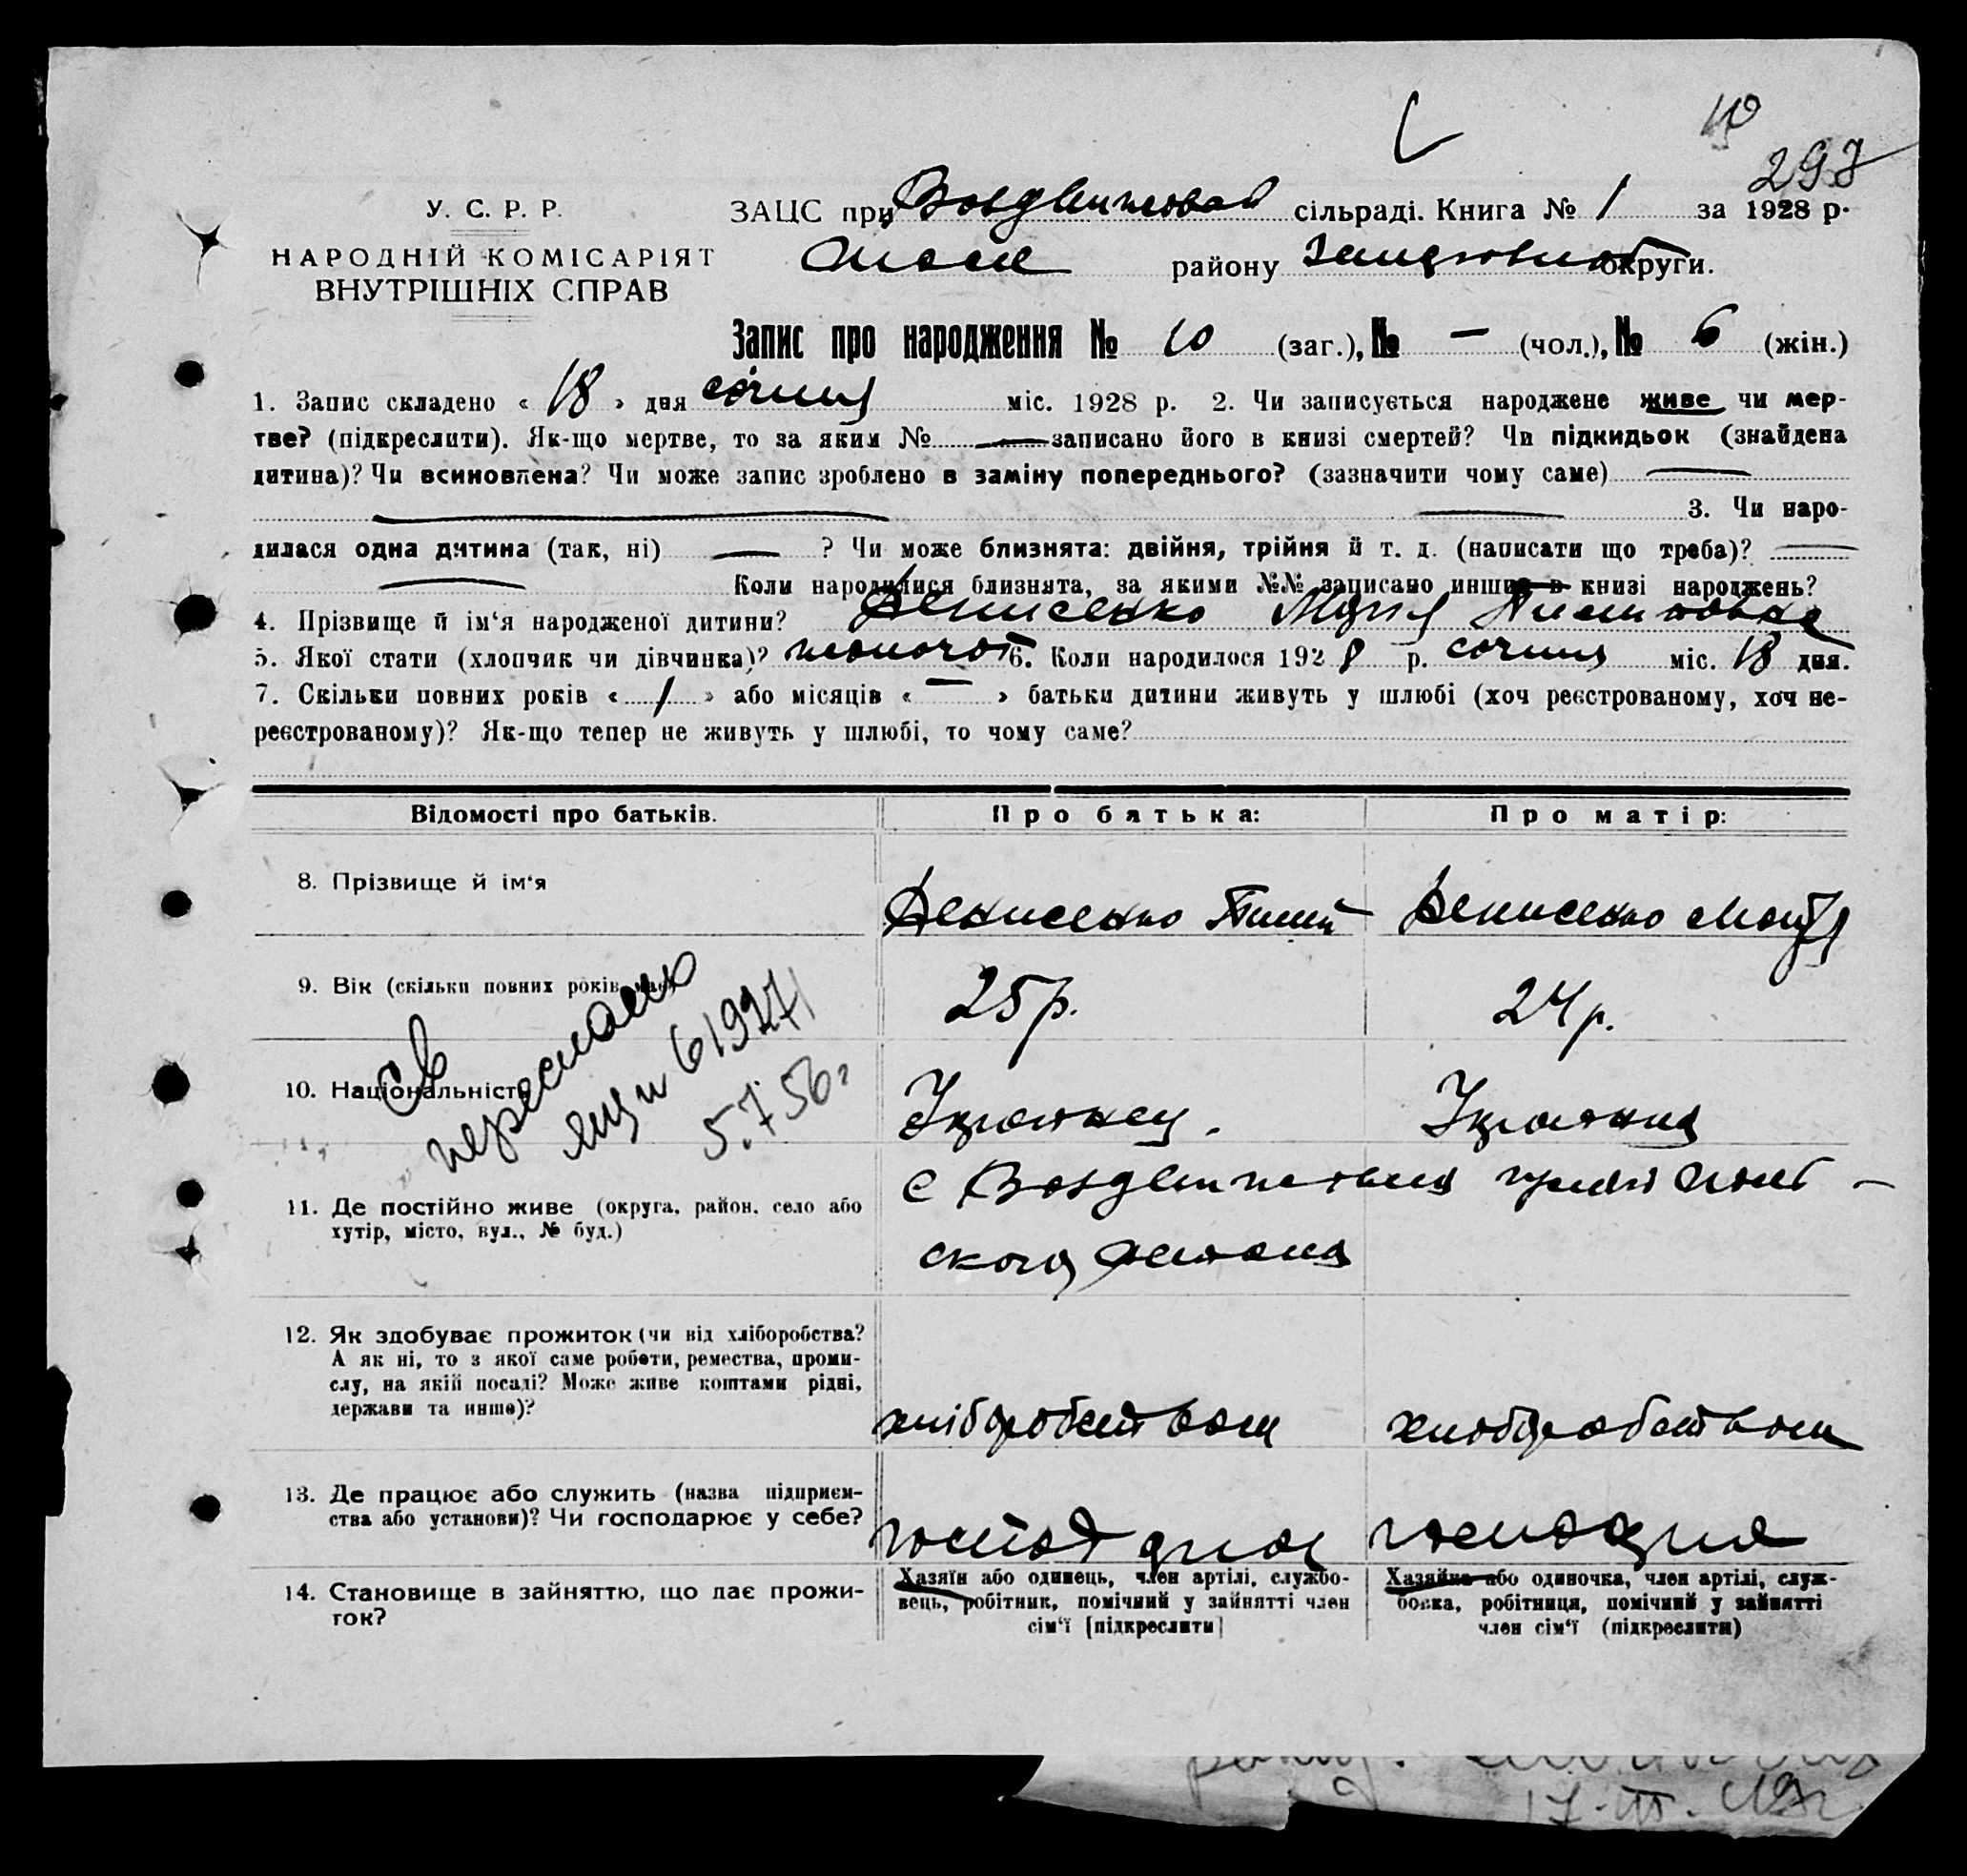 297
У. С. Р. Р.
НАРОДНІЙ КОМІСАРІЯТ
ВНУТРІШНІХ СПРАВ
ЗАЦС при сільраді. Книга № 1 за 1928 р.
району округи.
Запис про народження № 10 (заг.), № — (чол.), № 6 (жін.)
1. Запис складено « 18 » дня січня міс. 1928 р. 2. Чи записується народжене живе чи мер-
тве? (підкреслити). Як-що мертве, то за яким № — записано його в книзі смертей? Чи підкидьок (знайдена
дитина)? Чи всиновлена? Чи може запис зроблено в заміну попереднього? (зазначити чому саме) —
— — 3. Чи наро-
дилася одна дитина (так, ні) — ? Чи може близнята: двійня, трійня й т. д. (написати що треба)? —
— Коли народилися близнята, за якими №№ записано инших в книзі народжень?
4. Прізвище й ім‘я народженої дитини? Денисенко Марія
5. Якої стати (хлопчик чи дівчинка)? 6. Коли народилося 1928 р. січня міс. 18 дня.
7. Скільки повних років « 1 » або місяців « — » батьки дитини живуть у шлюбі (хоч реєстрованому, хоч не-
реєстрованому)? Як-що тепер не живуть у шлюбі, то чому саме?
Відомості про батьків. Про батька: Про матір:
8. Прізвище й ім‘я Денисенко Денисенко
9. Вік (скільки повних років має) 25 р. 24 р.
10. Національність
св
переслано
5.7.56г
11. Де постійно живе (округа, район, село або
хутір, місто, вул., № буд.)
ского района
12. Як здобуває прожиток (чи від хліборобства?
А як ні, то з якої саме роботи, ремества, проми-
слу, на якій посаді? Може живе коштами рідні,
держави та инше)?
хліборобством хлiборобством
13. Де працює або служить (назва підприєм-
ства або установи)? Чи господарює у себе?
14. Становище в зайняттю, що дає прожи-
ток?
Хазяїн або одинець, член артілі, службо-
вець, робітник, помічний у зайнятті член
сім‘ї [підкреслити]
Хазяйка або одиночка, член артілі, служ-
бовка, робітниця, помічний у зайнятті
член сім‘ї (підкреслити)